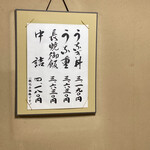 うなぎ丼 三一九〇円
うな重 三六三〇円
長焼御飯 三六三〇円
中詰 四一八〇円